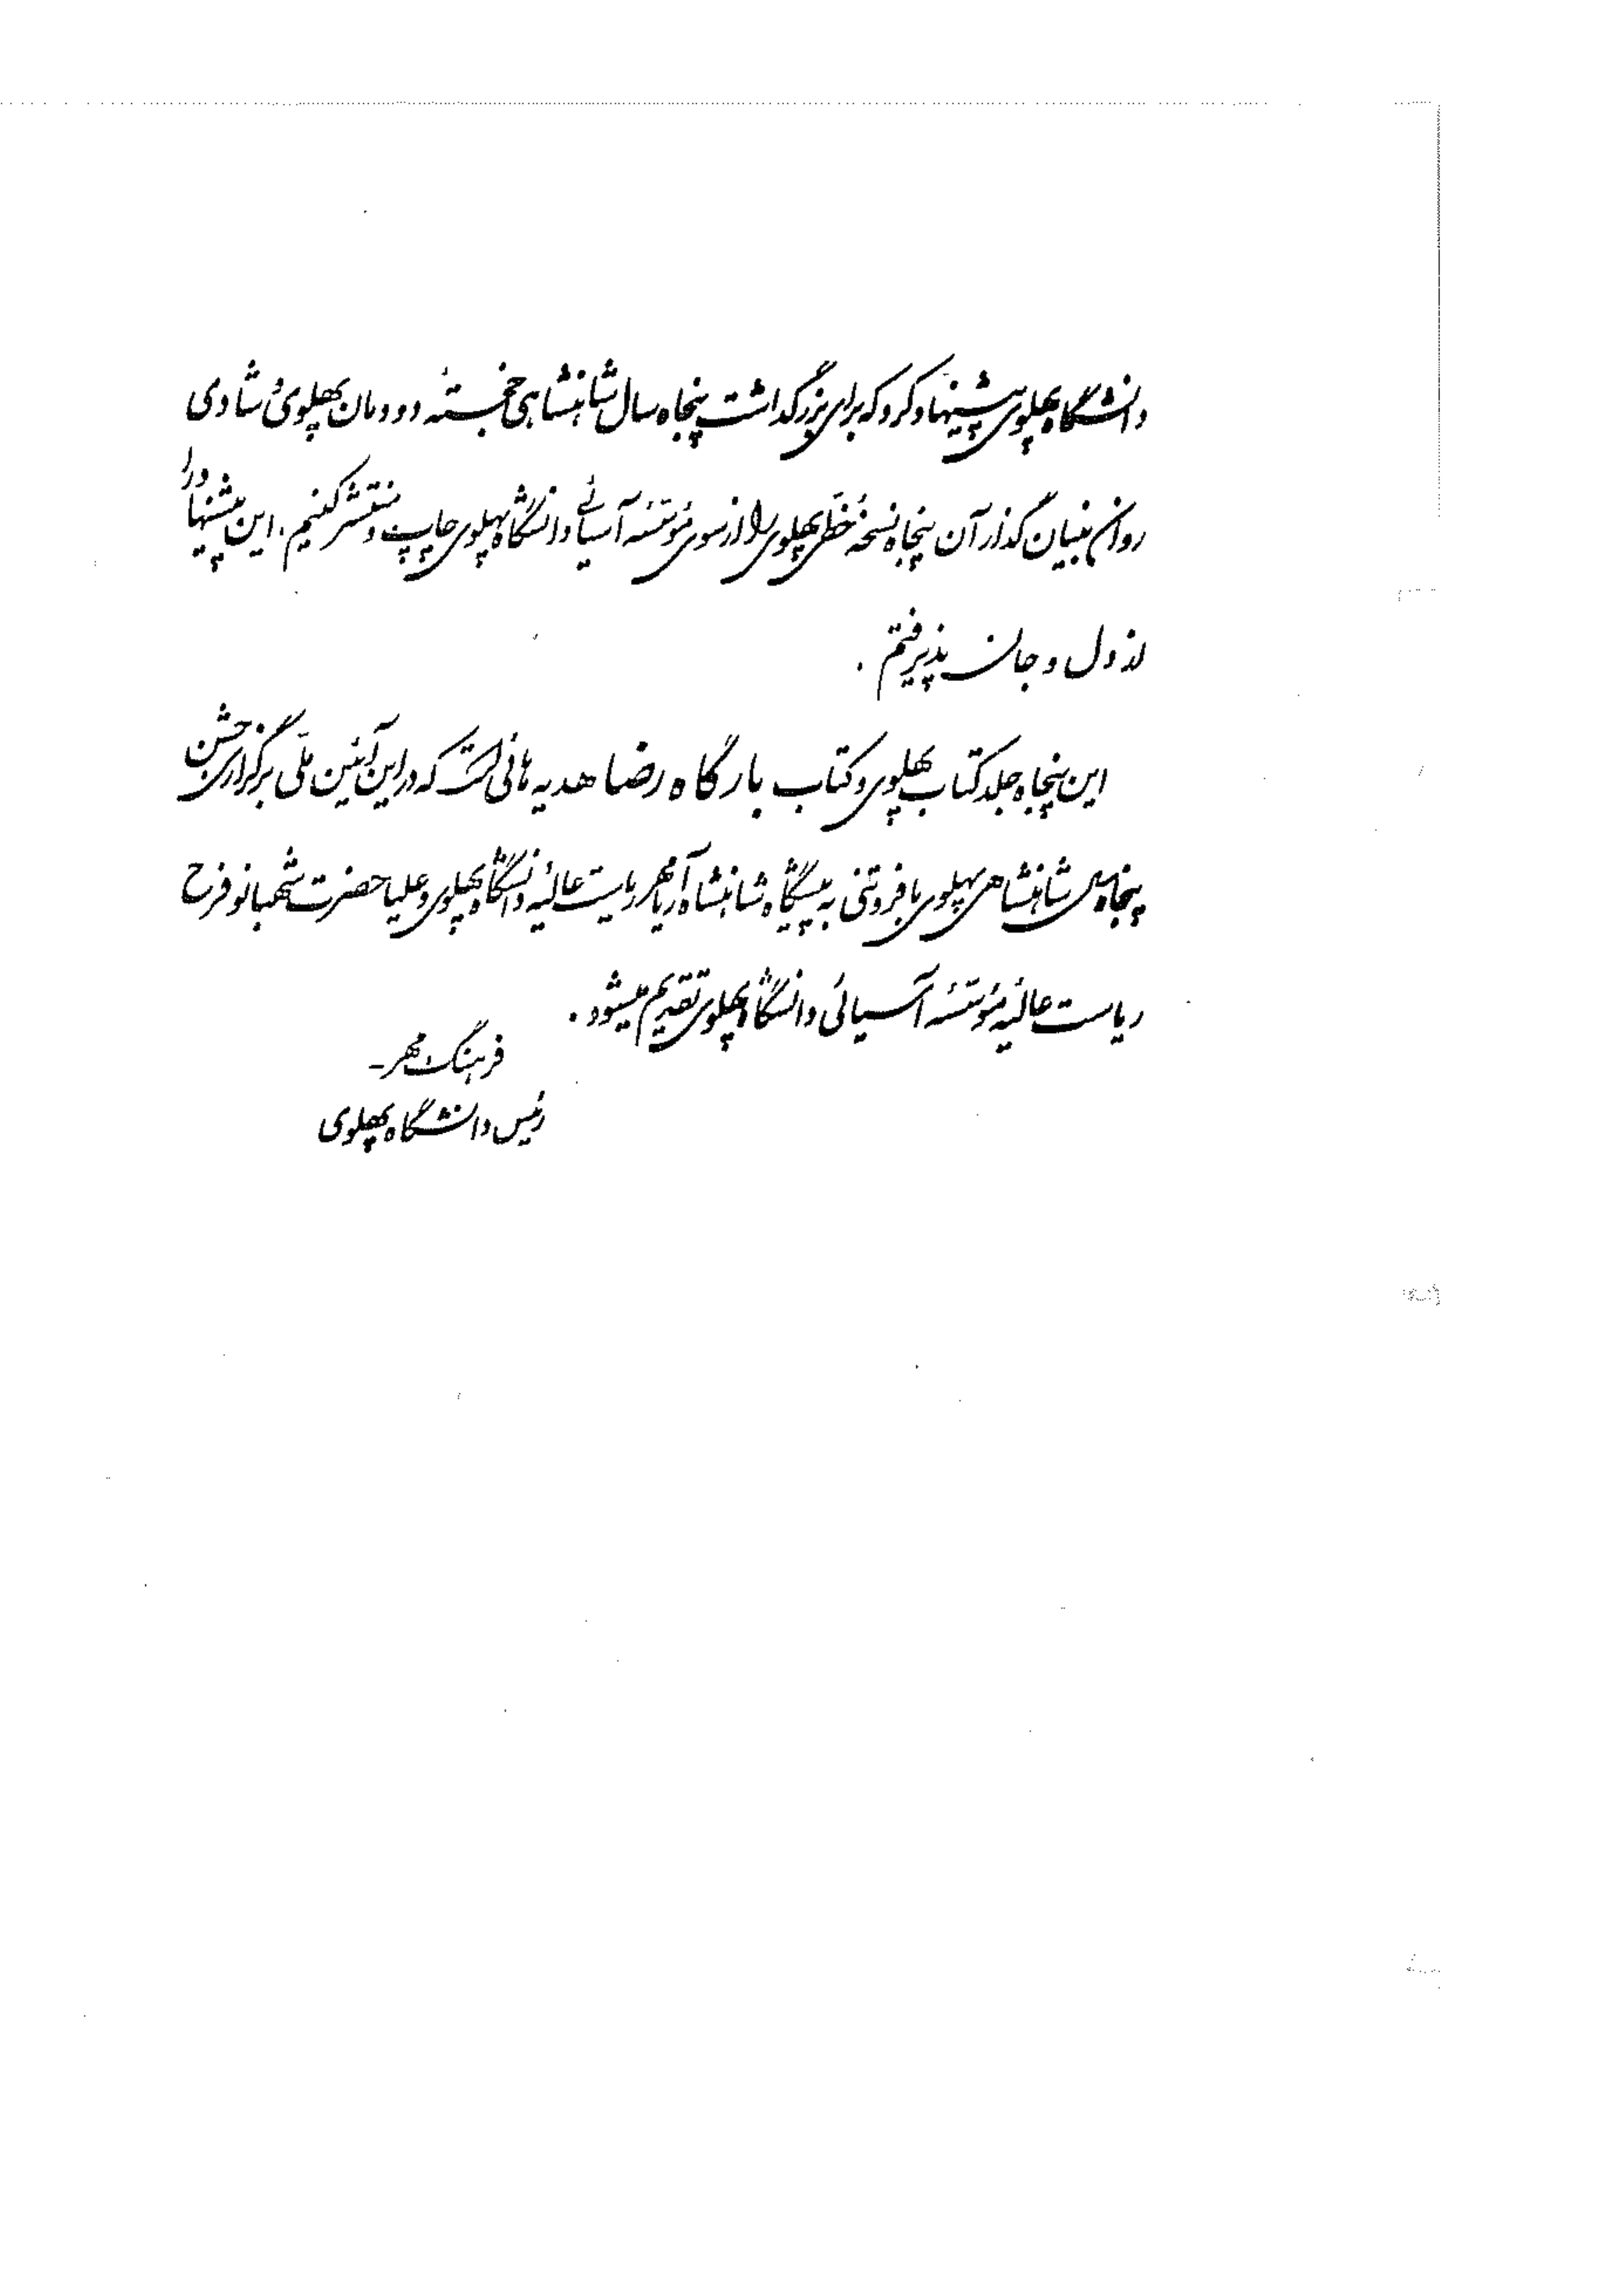 دانشگاه پهلوی پیشنهاد کرد که برای بزرگداشت پنجاه سال شاهنشاهی خجستهٔ دودمان پهلوی و شادی
روان بنیان گذار آن پنجاه نسخهٔ خطی پهلوی را از سوی مؤسسهٔ آسیائی دانشگاه پهلوی چاپ و منتشر کنیم. این پیشنهاد را
از دل و جان پذیرفتم.
این پنجاه جلد کتاب پهلوی و کتاب بارگاه رضا هدیه هائی است که در این آئین ملّی برگزاری جشن
پنجاهمین شاهنشاهی پهلوی با فروتنی به پیشگاه شاهنشاه آریامهر ریاست عالیهٔ دانشگاه پهلوی و علیاحضرت شهبانو فرح
ریاست عالیهٔ مؤسسهٔ آسیائی دانشگاه پهلوی تقدیم میشود.
فرهنگ مهر -
رئیس دانشگاه پهلوی